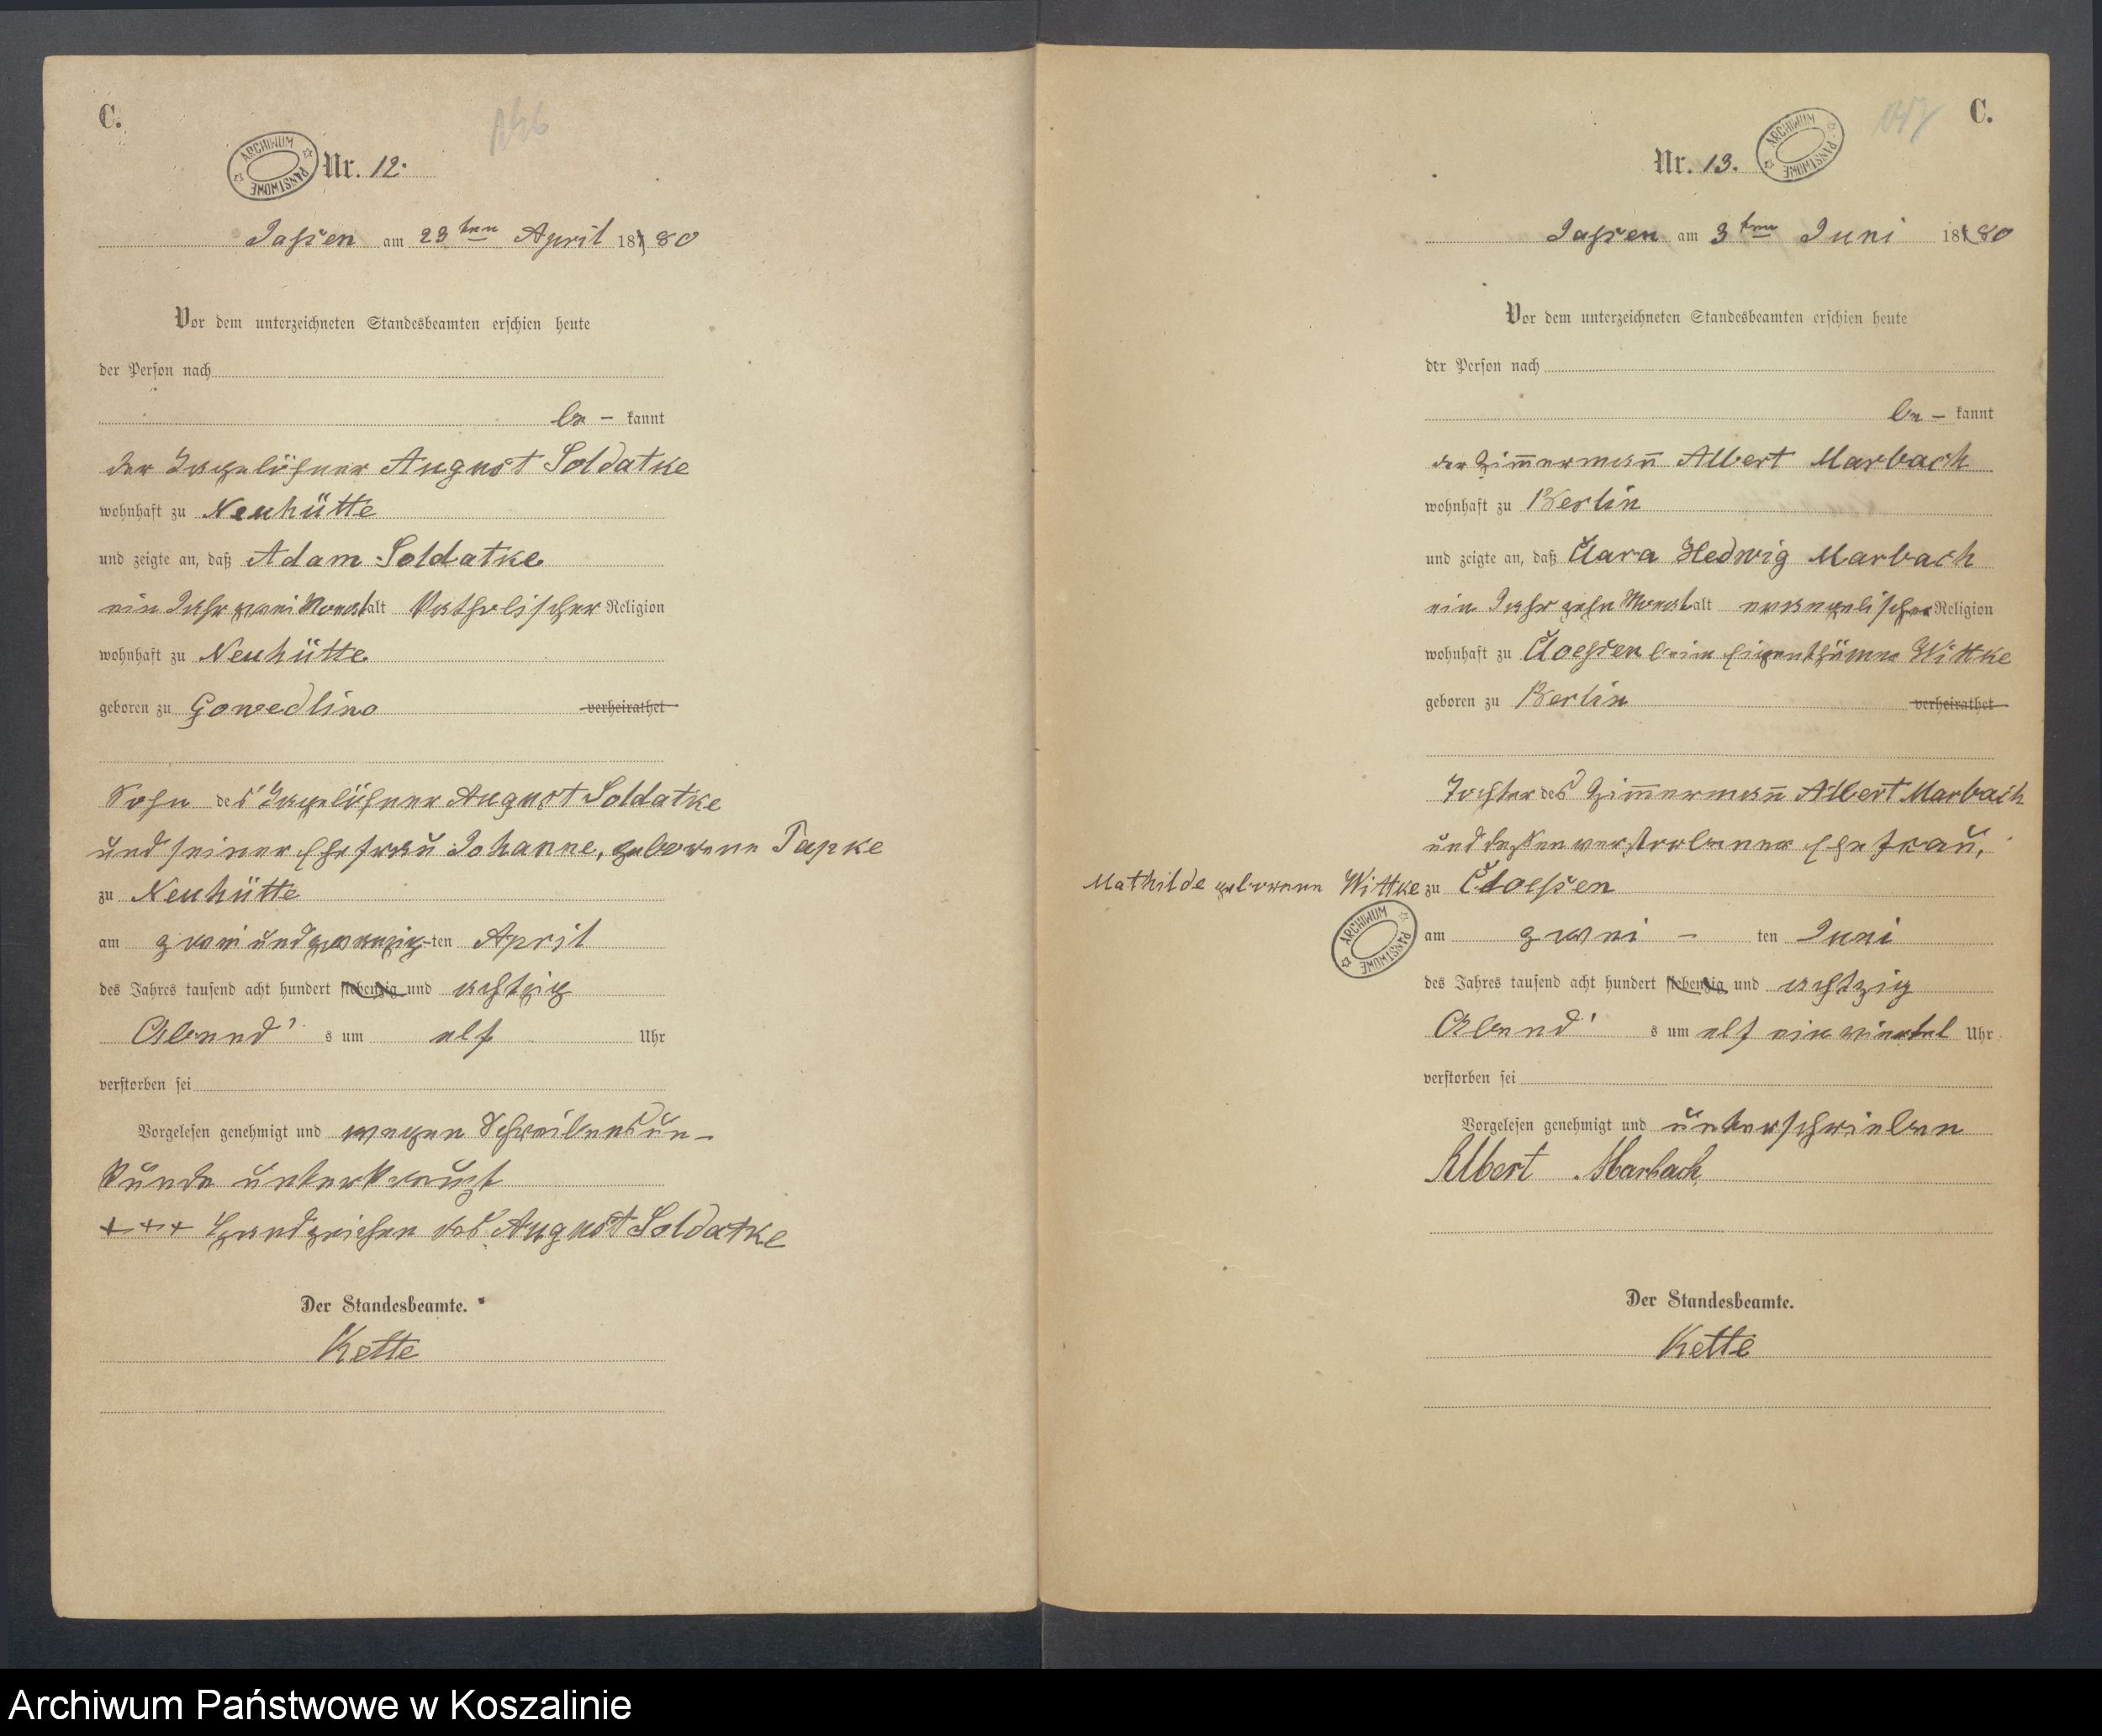 C.
Nr. 12.
Jassen am 23ten April 1880
Vor dem unterzeichneten Standesbeamten erschien heute
der Person nach
be- kannt
der Tagelöhner August Soldatke
wohnhaft zu Neuhütte
und zeigte an, daß Adam Soldatke
ein Jahr zwei Monat alt katholischer Religion
wohnhaft zu Neuhütte
geboren zu Gowedlino verheirathet
Sohn des Tagelöhner August Soldatke
und seiner Ehefrau Johanne, geborene Papke
zu Neuhütte
am zwei und zwanzig-ten April
des Jahres tausend acht hundert siebenzig und achtzig
Abend's um elf Uhr
verstorben sei
Vorgelesen genehmigt und wegen Schreibensun-
kunde unterkreuzt
+++ Handzeichen des August Soldatke
Der Standesbeamte.
Kette
C.
Nr. 13.
Jassen am 3ten Juni 1880
Vor dem unterzeichneten Standesbeamten erschien heute
der Person nach
be- kannt
der Zimmermann Albert Marbach
wohnhaft zu Berlin
und zeigte an, daß Clara Hedwig Marbach
ein Jahr zehn Monat alt evangelischer Religion
wohnhaft zu Cloessen beim Eigenthümer Wittke
geboren zu Berlin verheirathet
Tochter des Zimmermann Albert Marbach
und dessen verstorbener Ehefrau,
Mathilde geborene Wittke zu Cloessen
am zwei - ten Juni
des Jahres tausend acht hundert siebenzig und achtzig
Abend's um elf ein viertel Uhr
verstorben sei
Vorgelesen genehmigt und unterschrieben
Albert Marbach
Der Standesbeamte.
Kette
ARCHIWUM PAŃSTWOWE
ARCHIWUM PAŃSTWOWE
ARCHIWUM PAŃSTWOWE
Archiwum Państwowe w Koszalinie